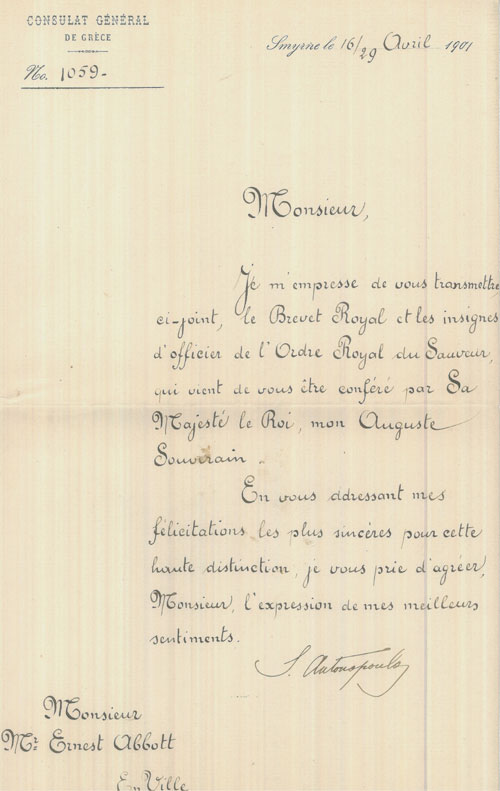 CONSULAT GÉNÉRAL
DE GRÈCE
No. 1059-
Smyrne le 16/29 Avril 1901
Monsieur,
Je m'empresse de vous transmettre
ci-joint, le Brevet Royal et les insignes
d'officier de l'Ordre Royal du Sauveur,
qui vient de vous être conféré par Sa
Majesté le Roi, mon Auguste
Souverain.
En vous addressant mes
félicitations les plus sincères pour cette
haute distinction, je vous prie d'agréer,
Monsieur, l'expression de mes meilleurs
sentiments.
S. Antonopoulos
Monsieur
Mr Ernest Abbott
En Ville